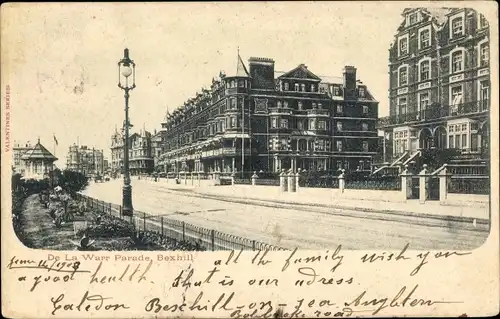 VALENTINES SERIES
De La Warr Parade, Bexhill
June 16, 1903
all the family wish you
a good health. that is our address.
Caledon Bexhill-on-Sea
road